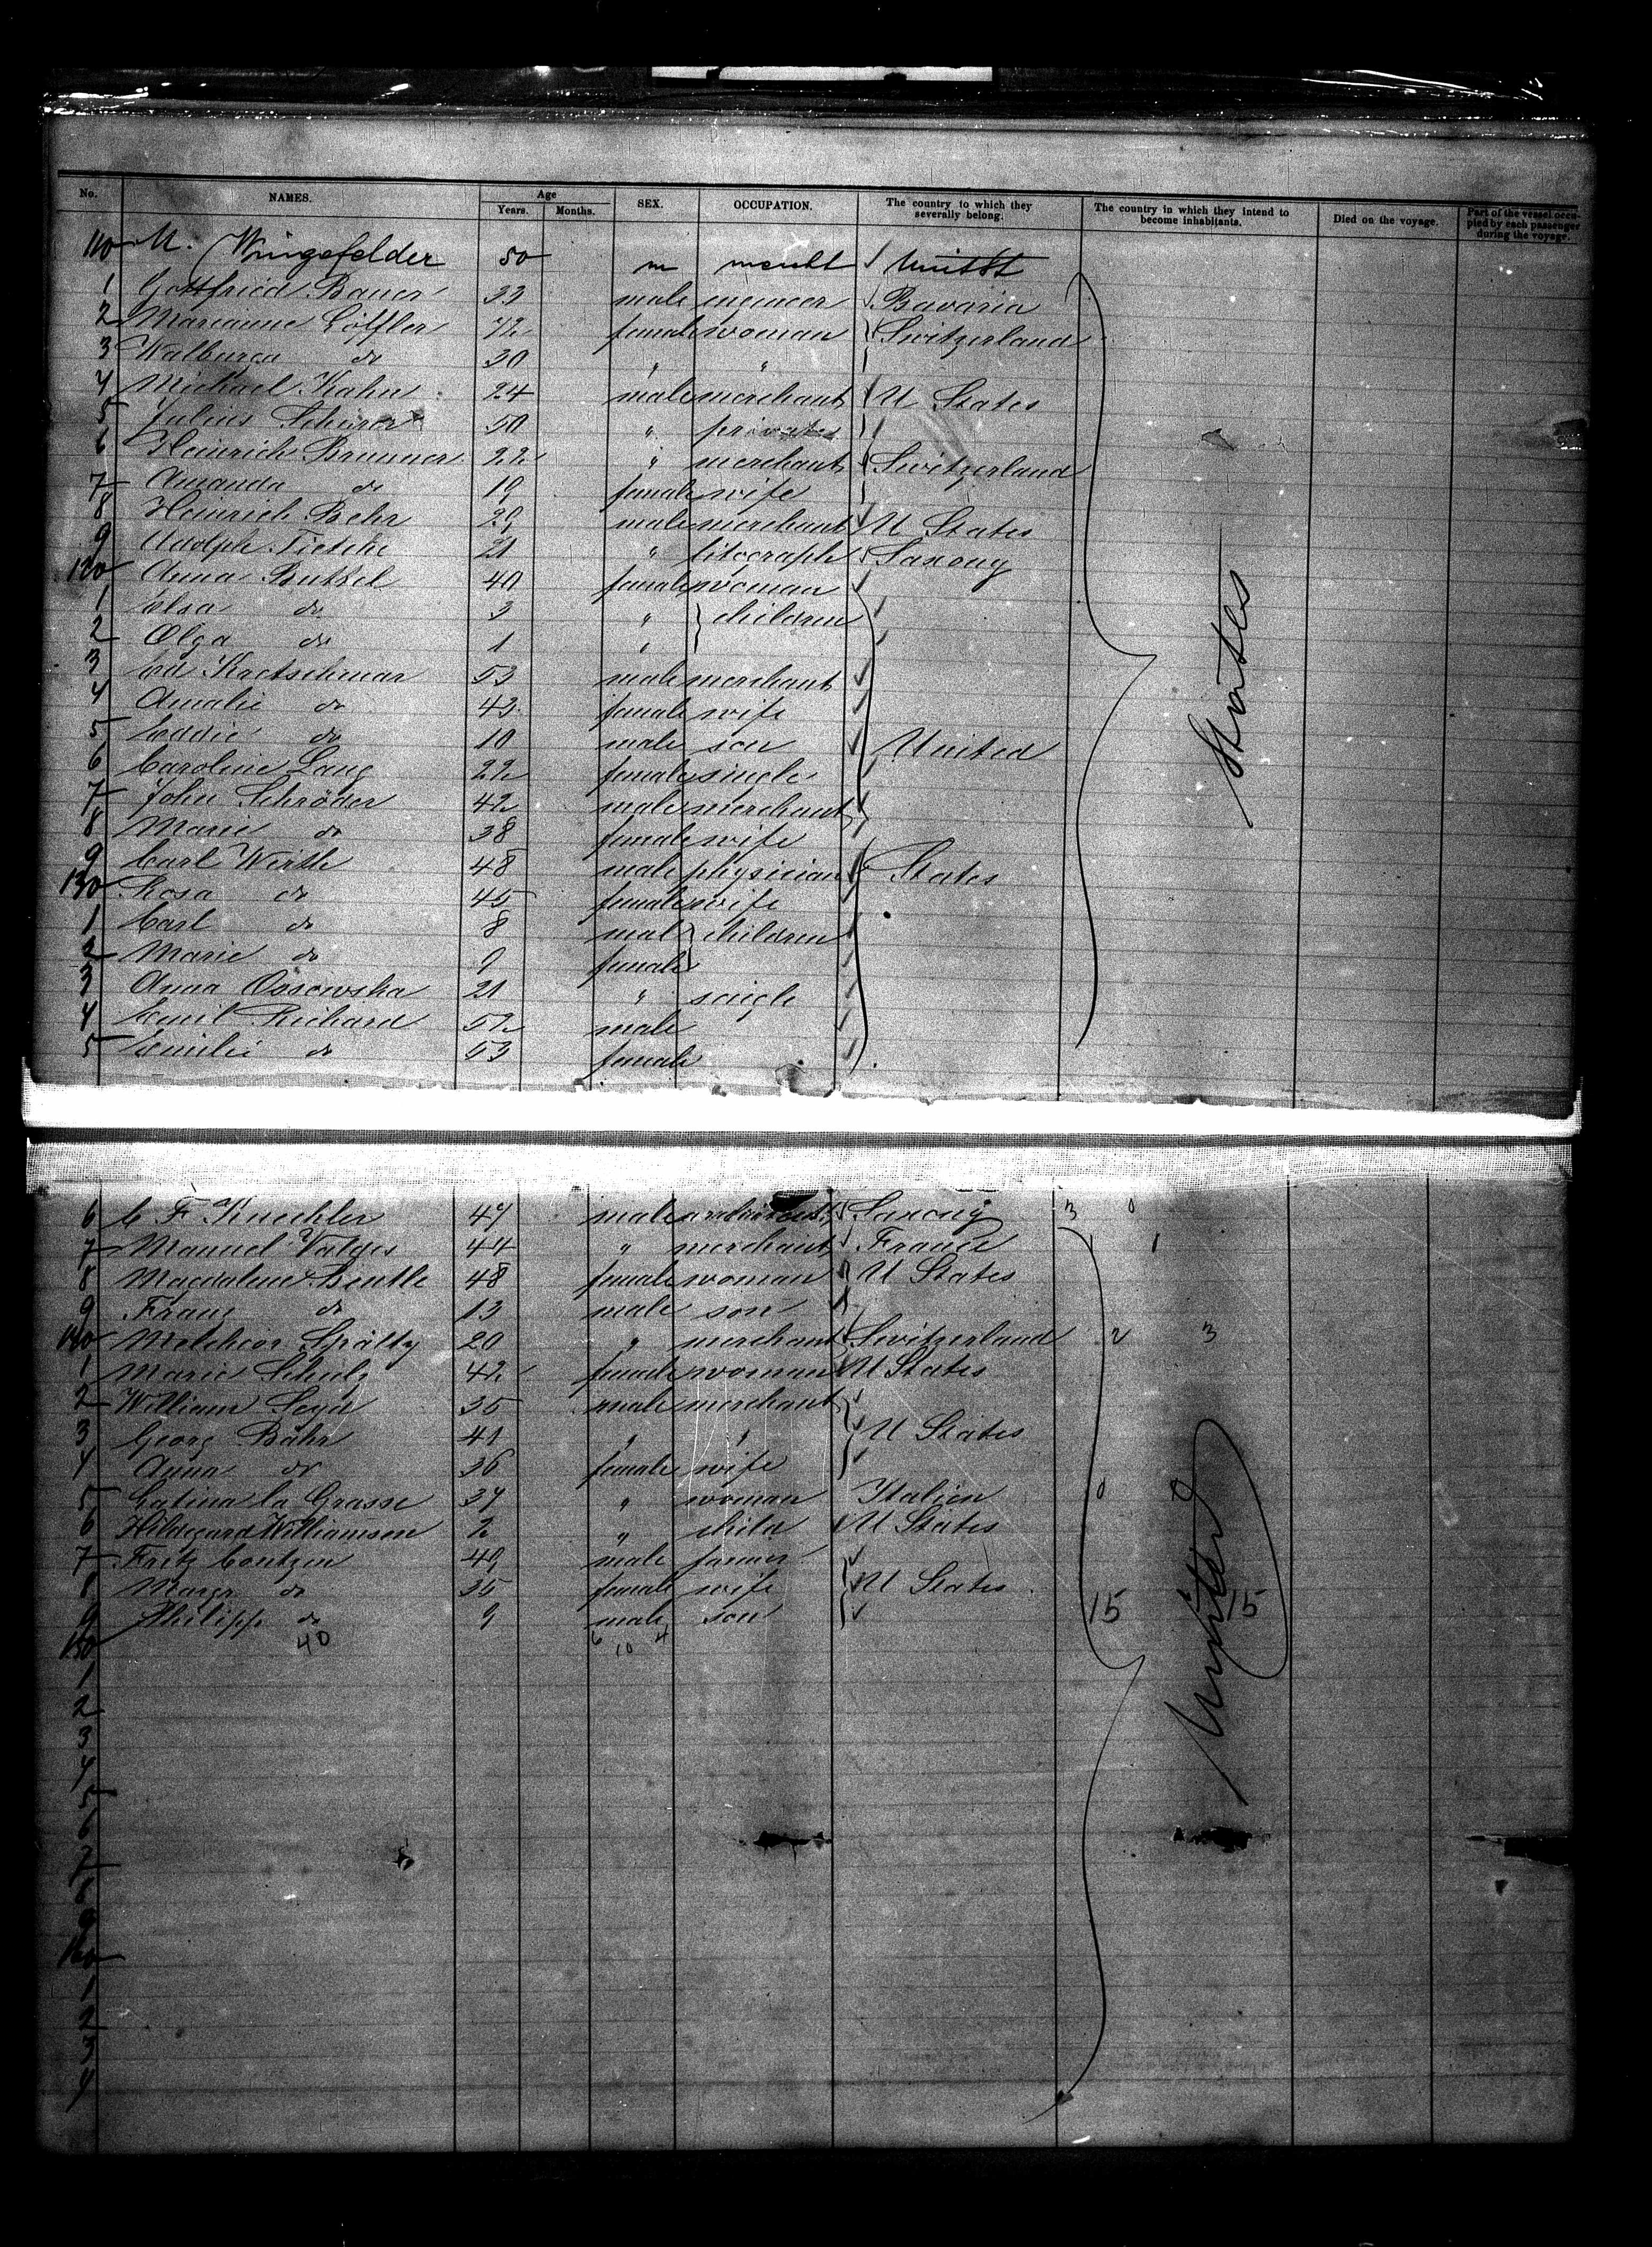 No. NAMES. Age Years. Months. SEX. OCCUPATION. The country to which they severally belong. The country in which they intend to become inhabitants. Died on the voyage. Part of the vessel occupied by each passenger during the voyage.
110 M. Wingefelder 50 m
1 Gottfried Bauer 33 male engineer Bavaria
2 Marianne Löffler 72 female woman Switzerland
3 Walburga do 30 " "
4 Michael Kahn 24 male merchant U States
5 Julius Scheirer 50 " private
6 Heinrich Brunner 22 " merchant Switzerland
7 Amanda do 19 female wife
8 Heinrich Behr 29 male merchant U States
9 Adolph Tietche 21 " litograph Saxony
120 Anna Buttel 40 female woman
1 Elsa do 3 " children
2 Olga do 1 "
3 Ed Kretschmar 53 male merchant
4 Amalie do 43 female wife
5 Eddie do 10 male son United
6 Caroline Lang 22 female single
7 John Schröder 42 male merchant
8 Marie do 38 female wife
9 Carl Wirth 48 male physician States
130 Rosa do 45 female wife
1 Carl do 8 mal children
2 Marie do 9 female
3 Anna Ossowska 21 " single
4 Emil Richard 52 male
5 Emilie do 53 female
States
6 C F Kuechler 47 male Saxony 3 0
7 Manuel Valdes 44 " merchant France 1 1
8 Magdalene Bentle 48 female woman U States
9 Franz do 13 male son
140 Melchior Spälty 20 " merchant Switzerland 2 3
1 Marie Schulz 42 female woman U States
2 William Seyd 35 male merchant
3 Georg Bähr 41 " " U States
4 Anna do 36 female wife
5 Gatina la Grasse 37 " woman Italien 0 0
6 Hildegard Williamsen 2 " child U States
7 Fritz Contzen 49 male farmer
8 Margr do 35 female wife U States
9 Philipp do 9 male son 15 15
150 40 6 10 4
1
2
3
4
5
6
7
8
9
160
1
2
3
4
United